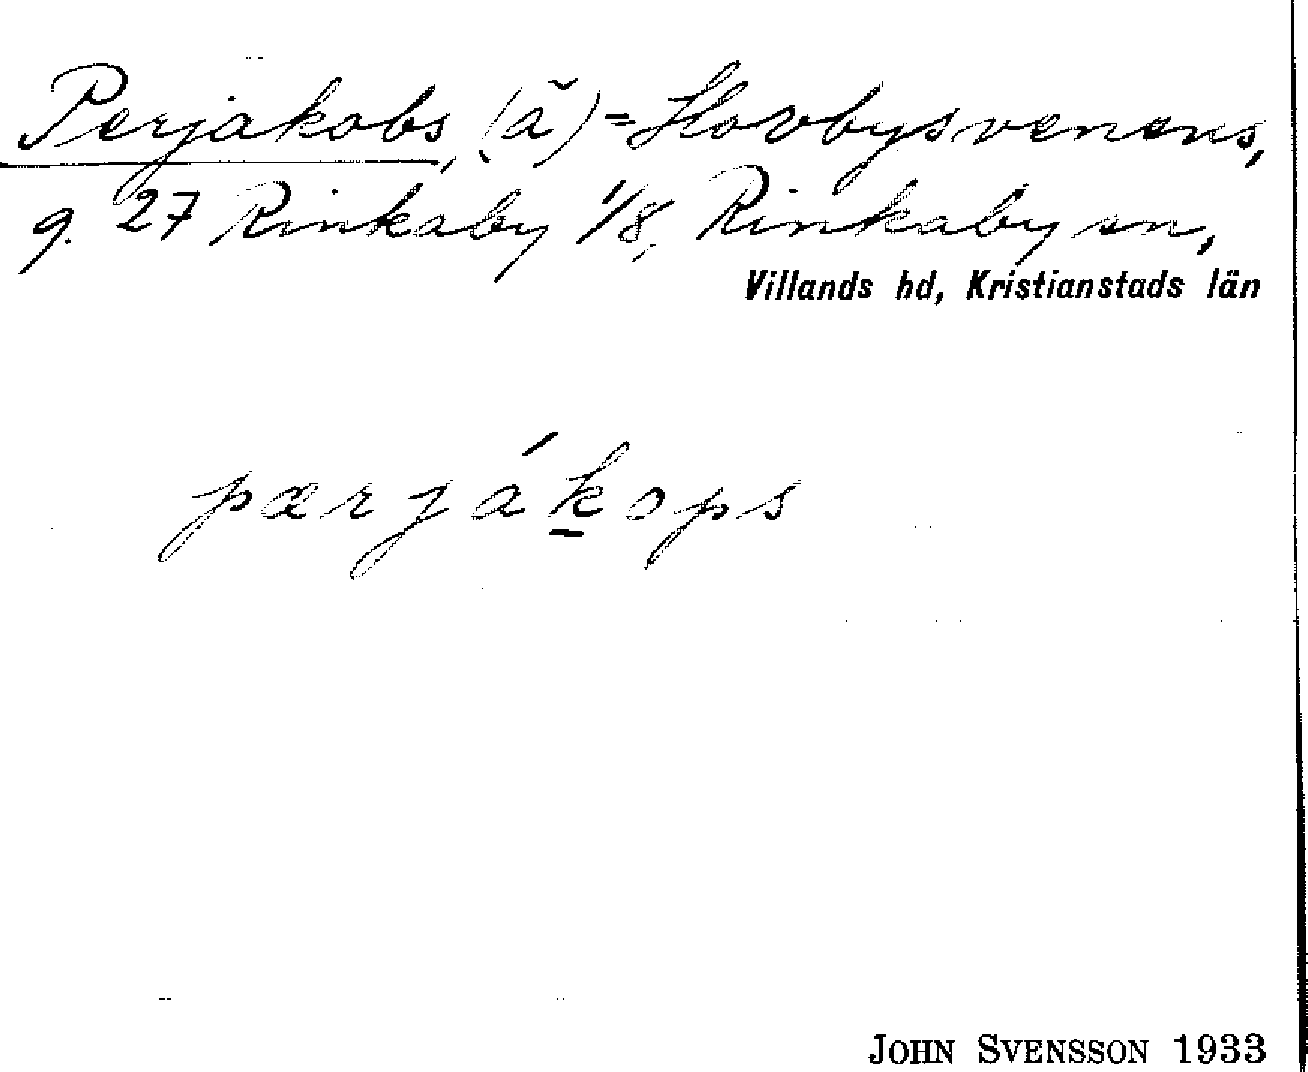 Perjakobs, (ă) = Hovbysvenens,
g. 27 Rinkaby 1/8, Rinkaby sn,
Villands hd, Kristianstads län
pærjákops
JOHN SVENSSON 1933